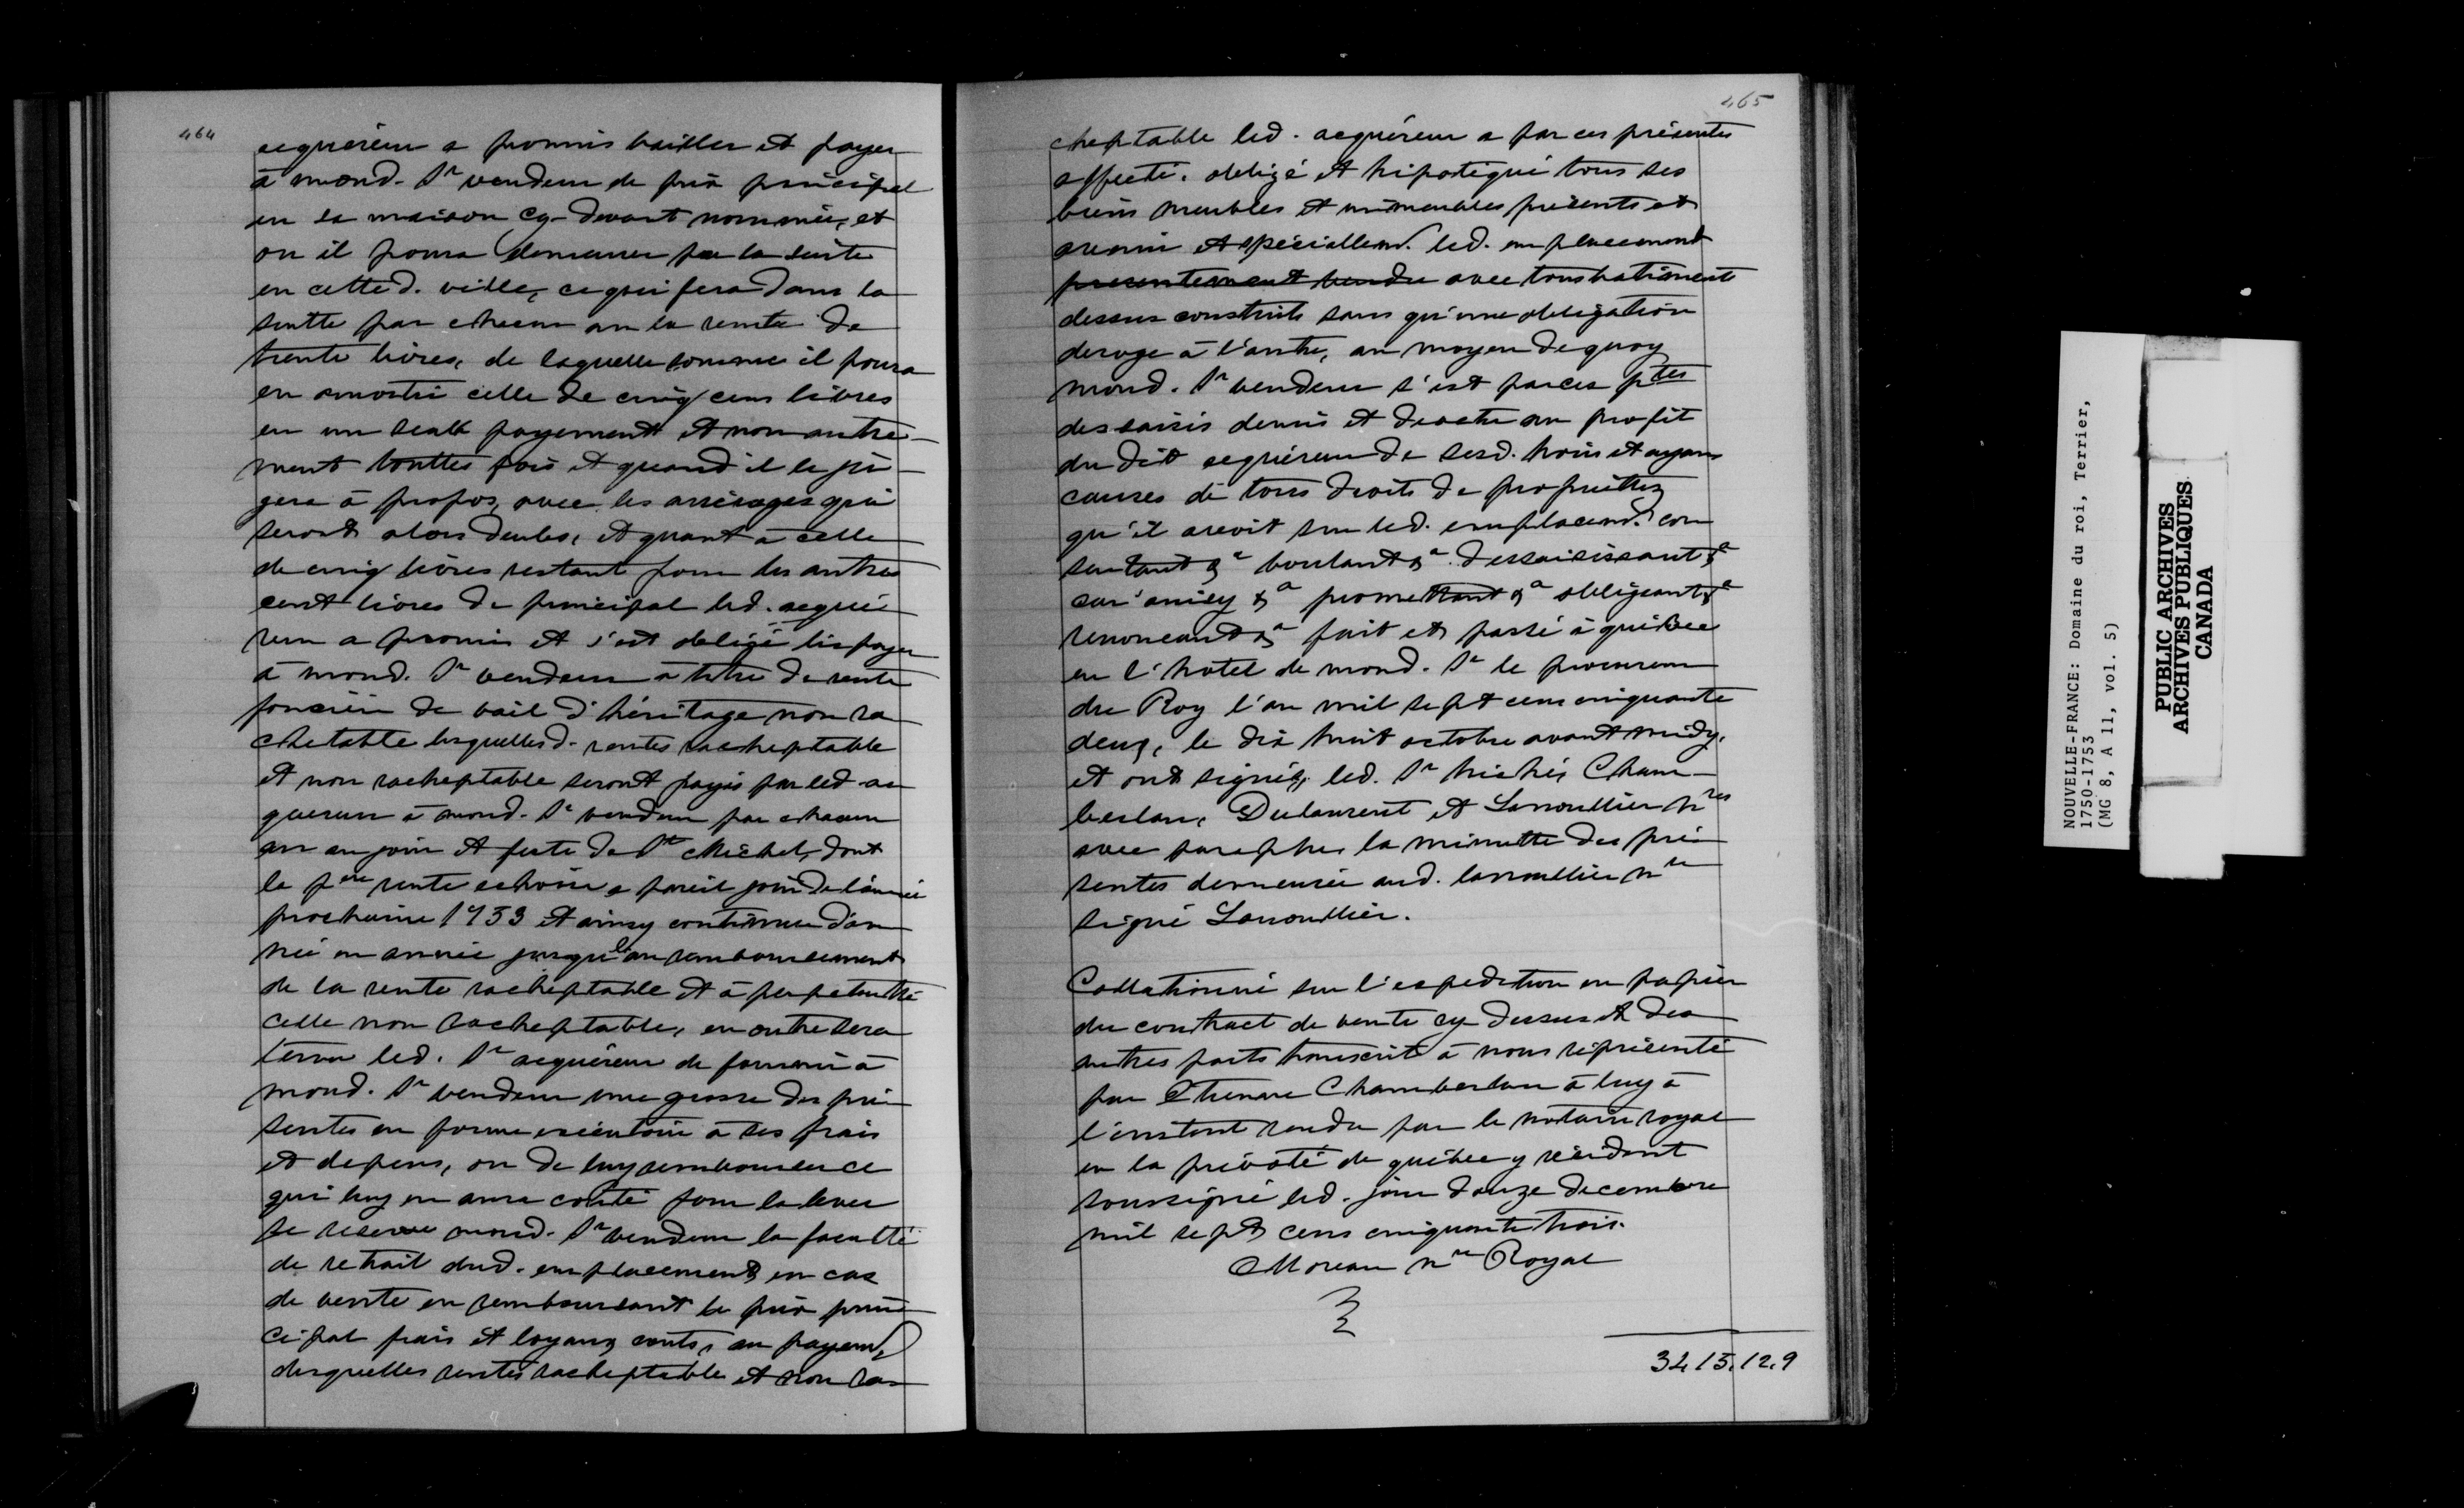 464
acquereur a promis bailler et payer
à mond. Sr vendeur de prix principal
en sa maison cy-devant nommée, et
ou il poura demeurer par la suite
en cette d. ville, ce qui fera dans la
suitte par chacun an la rente de
trente livres, de laquelle somme il poura
en amortir celle de cinq cens livres
en un seul payement et non autre-
ment touttes fois et quand il le ju-
gera à propos, avec les arrérages qui
seront alors deubs, et quant à celle
de cinq livres restant pour les autres
cent livres de principal led. acqué-
reur a promis et s'est obligé les payer
à mond. Sr vendeur à titre de rente
foncière de bail d'héritage non ra-
chetable lesquelles d. rentes racheptable
et non racheptable seront payés par led. ac-
quereur à mond. Sr vendeur par chacun
an au jour et feste de St Michel, dont
la pere rente echoira a pareil jour de l'année
prochaine 1753 et ainsy continuer d'an-
née en année jusqu'au remboursement
de la rente racheptable et à perpetuitté
celle non racheptable, en outre sera
tenu led. Sr acquéreur de fournir à
mond. Sr vendeur une grosse des pré-
sentes en forme exécutoire à ses frais
et depens, ou de luy rembourser ce
qui luy en aura coûté pour la lever
se reserve mond. Sr vendeur la facultté
de retrait dud. emplacement en cas
de vente en remboursant le prix prin-
cipal frais et loyaux couts, au payemt
desquelles rentes racheptable et non ra-
465
cheptable led. acquéreur a par ces présentes
affecté, obligé et hipotéqué tous ses
biens meubles et immeubles présents et
avenir et spéciallemt. led. emplacement
presentement vendu avec tous batiments
dessus construits sans qu'une obligation
deroge à l'autre, au moyen de quoy
mond. Sr vendeur s'est par ces ptes
dessaisis demis et devetu au profit
du dit acquéreur de sesd. hoirs et ayans
causes de tous droits de propriettez
qu'il avoit sur led. emplacemt. con-
sentant &a voulant &a dessaisissant &a
car ainsy &a promettant &a obligeant &a
renonceant &a fait et passé à québec
en l'hotel de mond. Sr le procureur
du Roy l'an mil sept cens cinquante
deux, le dix huit octobre avant midy,
et ont signéz, led. Sr hiché, Cham-
berlan, Dulaurent et Lanoullier nres
avec paraphe, la minutte des pré-
sentes demeurée aud. lanoullier nre
signé Lanoullier.
Collationné sur l'expedition en papier
du contract de vente cy dessus et des
autres parts transcrit à nous réprésenté
par Etienne Chamberlan à luy à
l'instant rendu par le notaire royal
en la prévoté de québec y résidant
soussigné led. jour douze decembre
mil sept cens cinquante trois.
Moreau nre Royal
3415.12.9
NOUVELLE-FRANCE: Domaine du roi, Terrier,
1750-1753
(MG 8, A 11, vol. 5)
PUBLIC ARCHIVES
ARCHIVES PUBLIQUES
CANADA